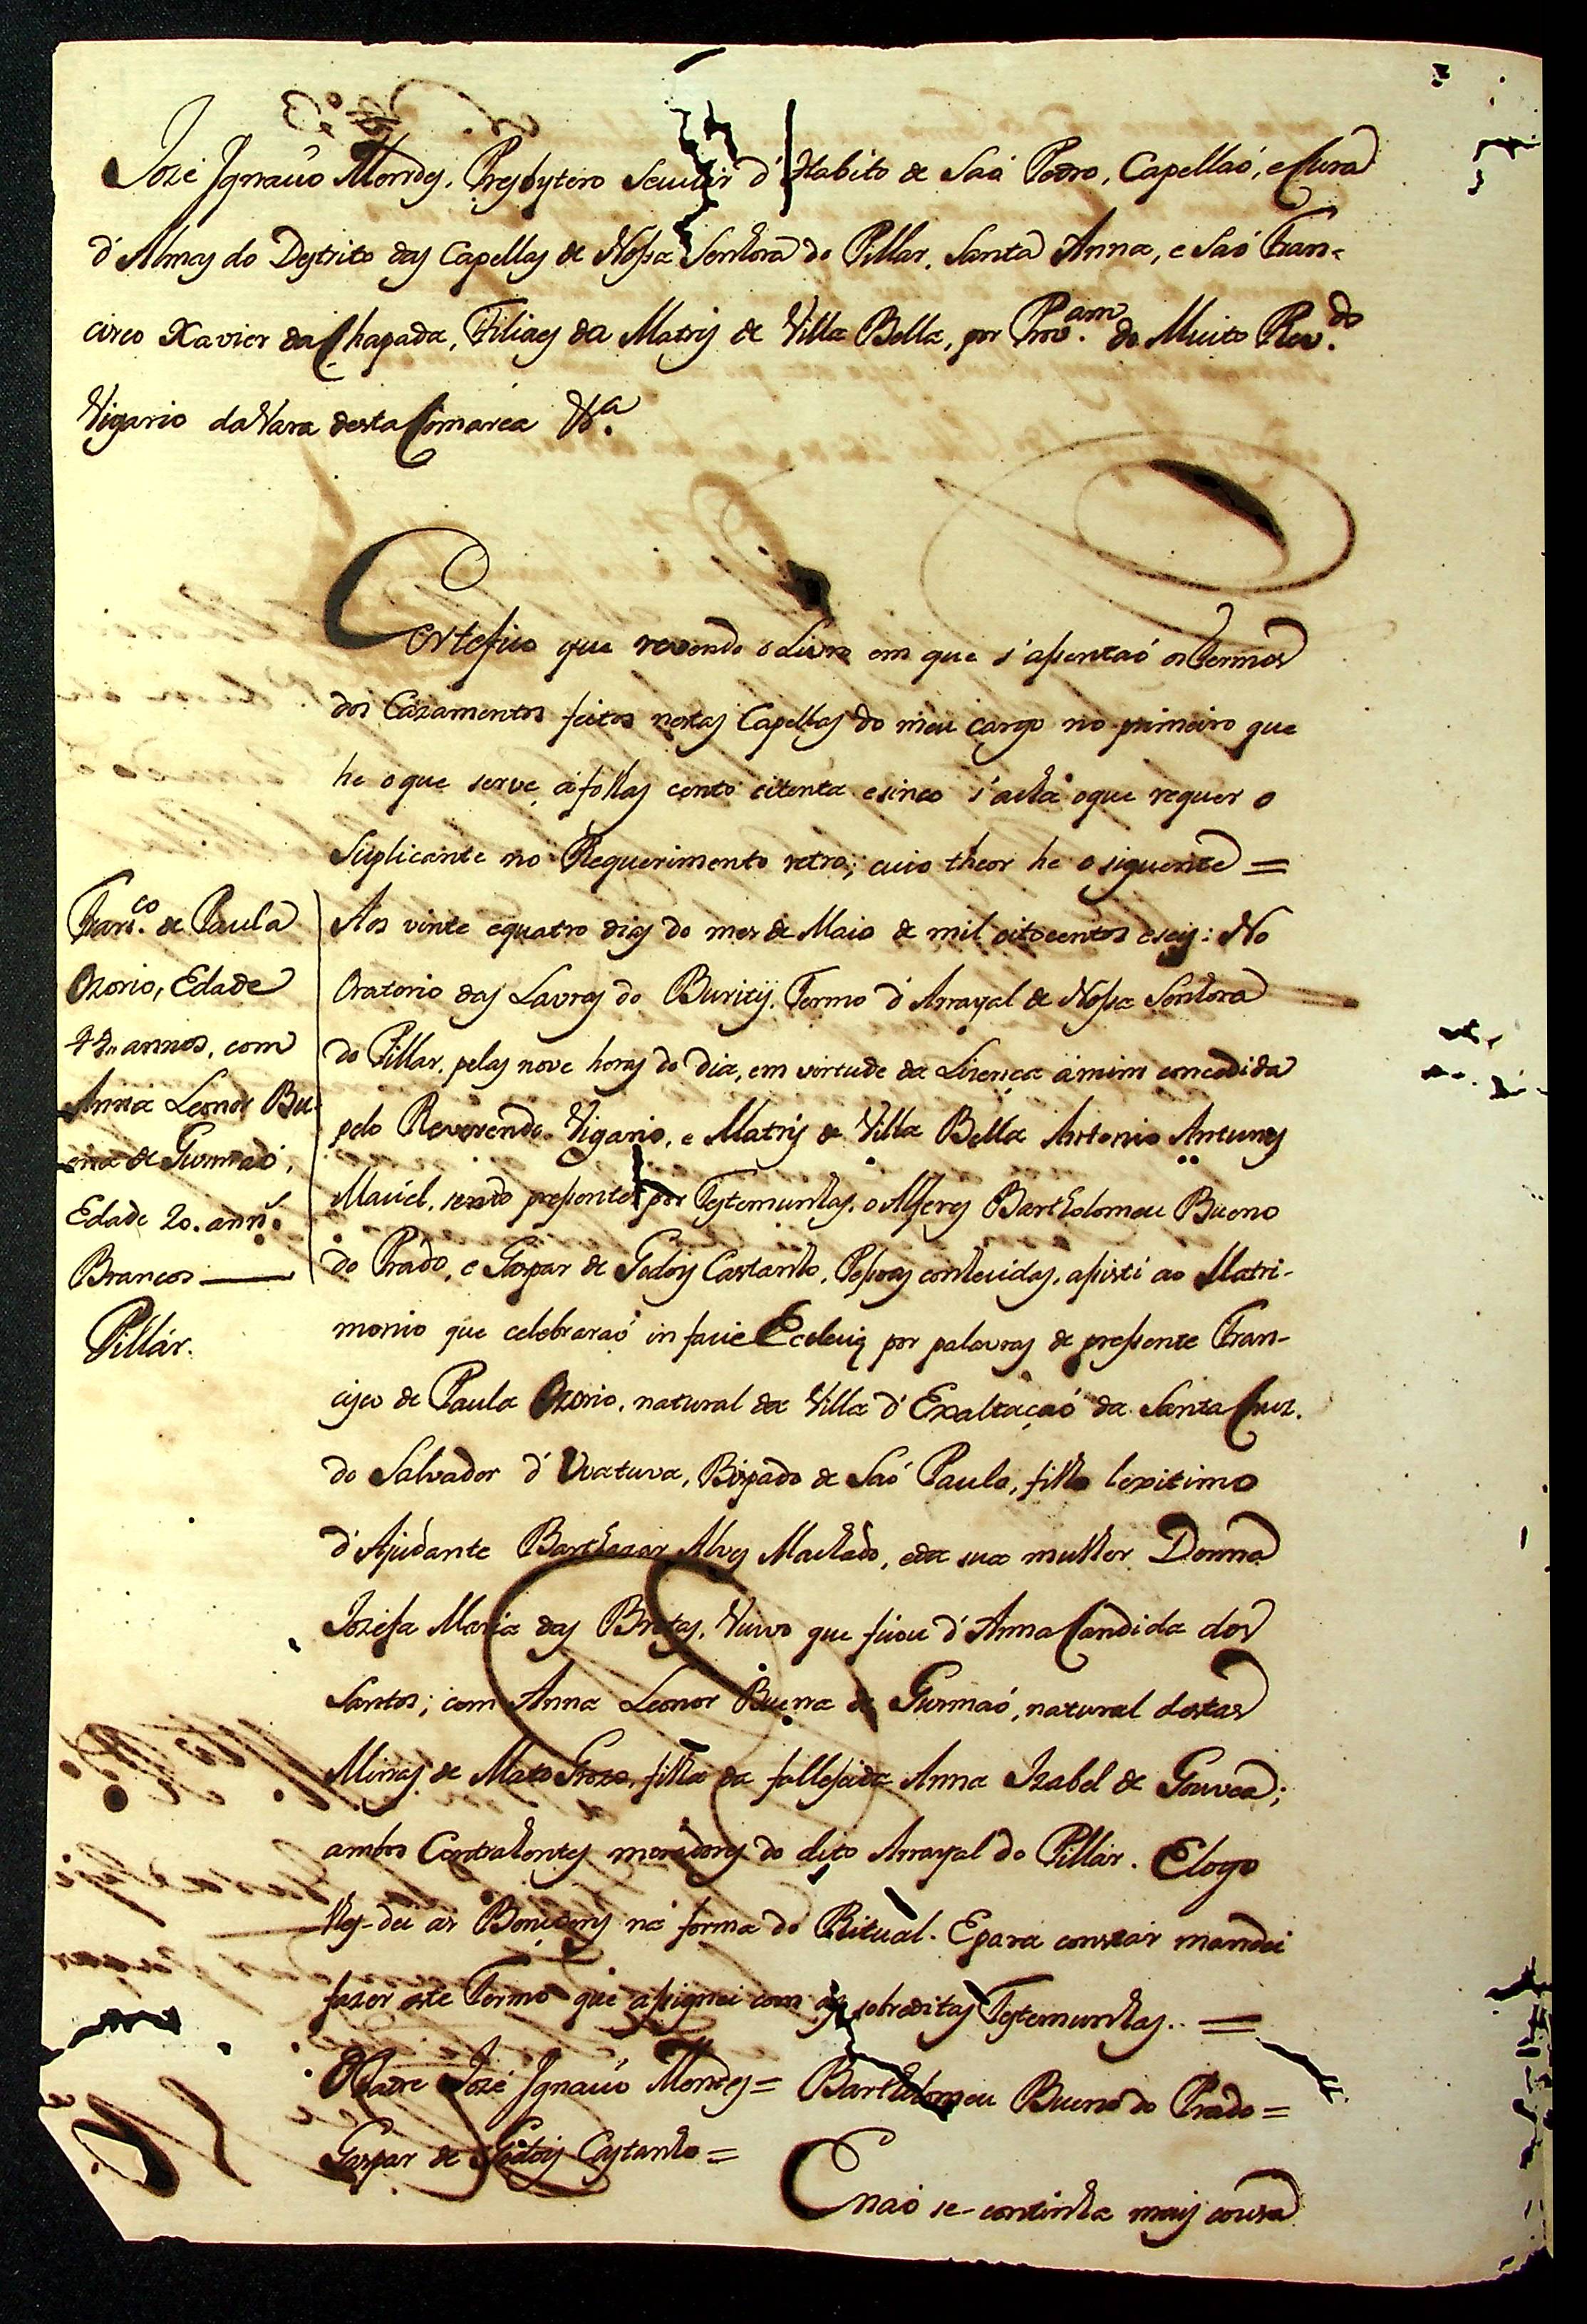 Jozé Ignacio Mendes, Presbytero Secular d'Habito de Saõ Pedro, Capellaõ, e Cura
d'Almas do Destrito das Capellas de Nossa Senhora do Pillar, Santa Anna, e Saõ Fran-
cisco Xavier da Chapada, Filiaes da Matris de Villa Bella, por Prov.am do Muito Rev.do
Vigario da Vara desta Comarca &.a
Certefico que revendo o Livro em que s'assentaõ os Termos
dos Cazamentos feitos nestas Capellas do meu cargo no primeiro que
he o que serve, á folhas cento oitenta e sinco s'acha o que requer o
Suplicante no Requerimento retro; cuio theor he o siguente =
Fran.co de Paula
Ozorio, Edade
annos, com
Anna Leonor Bu-
ena de Gusmaõ,
Edade 20. ann.s
Brancos —
Pillár.
Aos vinte e quatro dias do mes de Maio de mil oitocentos e seis: No
Oratorio das Lavras do Buritÿ, Termo d'Arrayal de Nossa Senhora
do Pillar, pelas nove horas do dia, em virtude da Licença á mim concedida
pelo Reverendo Vigario, e Matris de Villa Bella Antonio Antunes
Maciel, sendo pressentes por Testemunhas, o Alferes Bartholomeu Bueno
do Prado, e Gaspar de Godois Castanho, Pessoas conhecidas, assisti ao Matri-
monio que celebraraõ in facie Eclesiæ por palavras de pressente Fran-
cisco de Paula Ozorio, natural da Villa d'Exaltaçaõ da Santa Cruz.
do Salvador d'Uvatuva, Bispado de Saõ Paulo, filho lexitimo
d'Ajudante Barthazar Alves Machado, e da sua mulher Donna
Jozefa Maria das Brotas, Viuvo que ficou d'Anna Candida dos
Santos; com Anna Leonor Buena de Gusmaõ, natural destas
Minas de Mato Grozo, filha da fallesida Anna Izabel de Gouvea;
ambos Contrahentes moradores do dito Arrayal do Pillár. E logo
lhes-dei as Bençoens na forma do Ritual. E para constar mandei
fazer este Termo que assignei com as sobreditas Testemunhas.. =
O Padre Jozé Ignacio Mendes = Bartholomeu Bueno do Prado =
Gaspar de Godois Castanho =
E naõ se-continha mais cousa